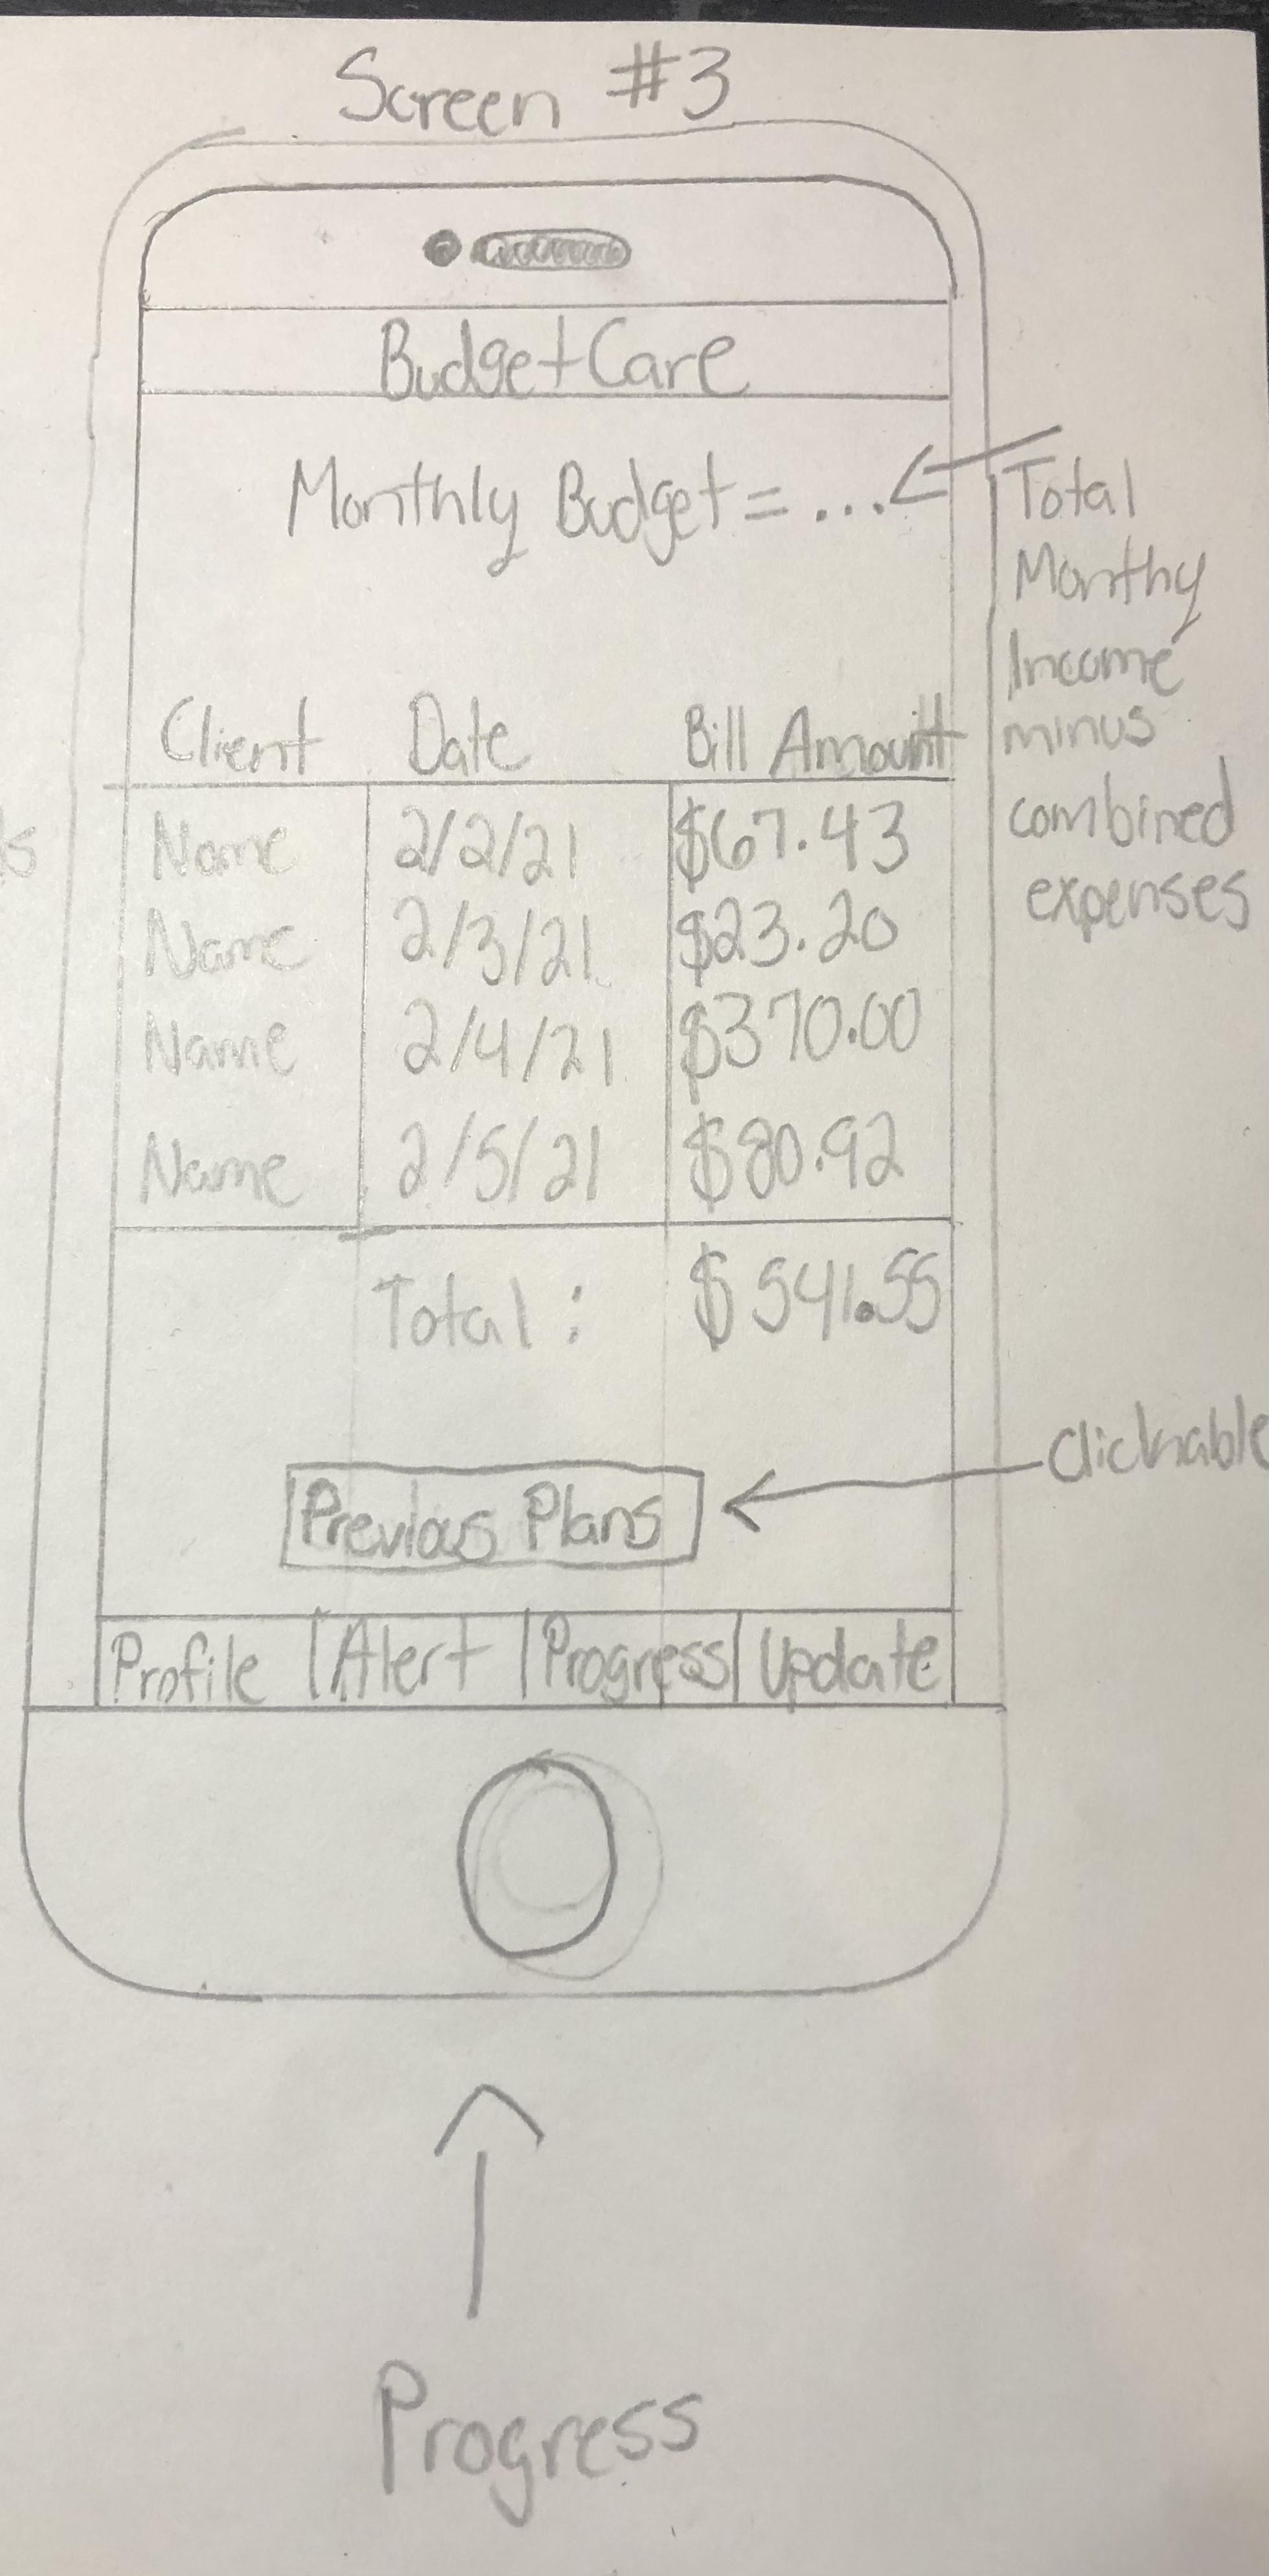 Screen #3
BudgetCare
Monthly Budget = ...
Total
Monthy
Income
minus
combined
expenses
Client Date Bill Amount
Name 2/2/21 $67.43
Name 2/3/21 $23.20
Name 2/4/21 $370.00
Name 2/5/21 $80.92
Total: $541.55
Previous Plans
Clicknable
Profile Alert Progress Update
Progress